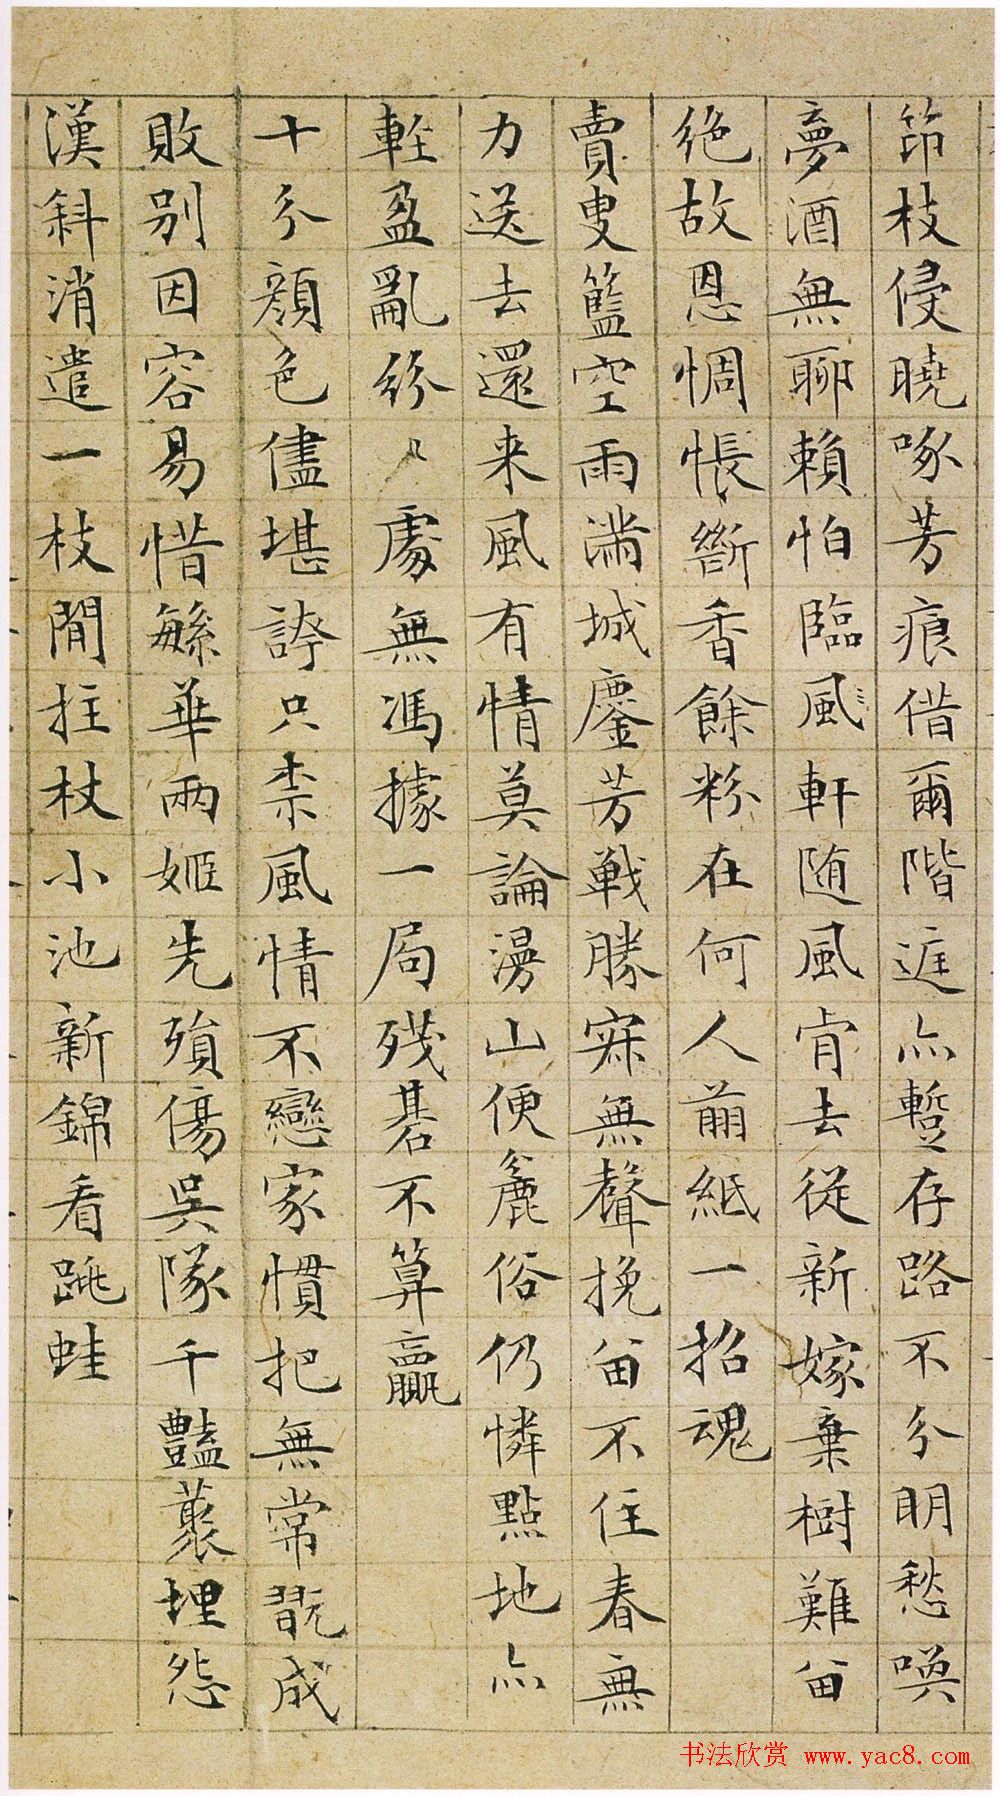 筇枝侵曉啄芳痕借爾階逕亦蹔存路不分明愁喚
夢酒無聊賴怕臨風軒随風肯去從新嫁棄樹難留
绝故恩惆悵斷香餘粉在何人剪紙一招魂
賣叟籃空雨滿城鏖芳戦勝寂無聲挽留不住春無
力送去還来風有情莫論漫山便麄俗仍憐點地亦
輕盈亂紛〻處無馮據一局殘碁不算贏
十分顔色儘堪誇只柰風情不戀家慣把無常翫成
敗别因容易惜繇華兩姬先殞傷吳隊千豔叢埋怨
漢斜消遣一枝閒拄杖小池新錦看跳蛙
书法欣赏 www.yac8.com